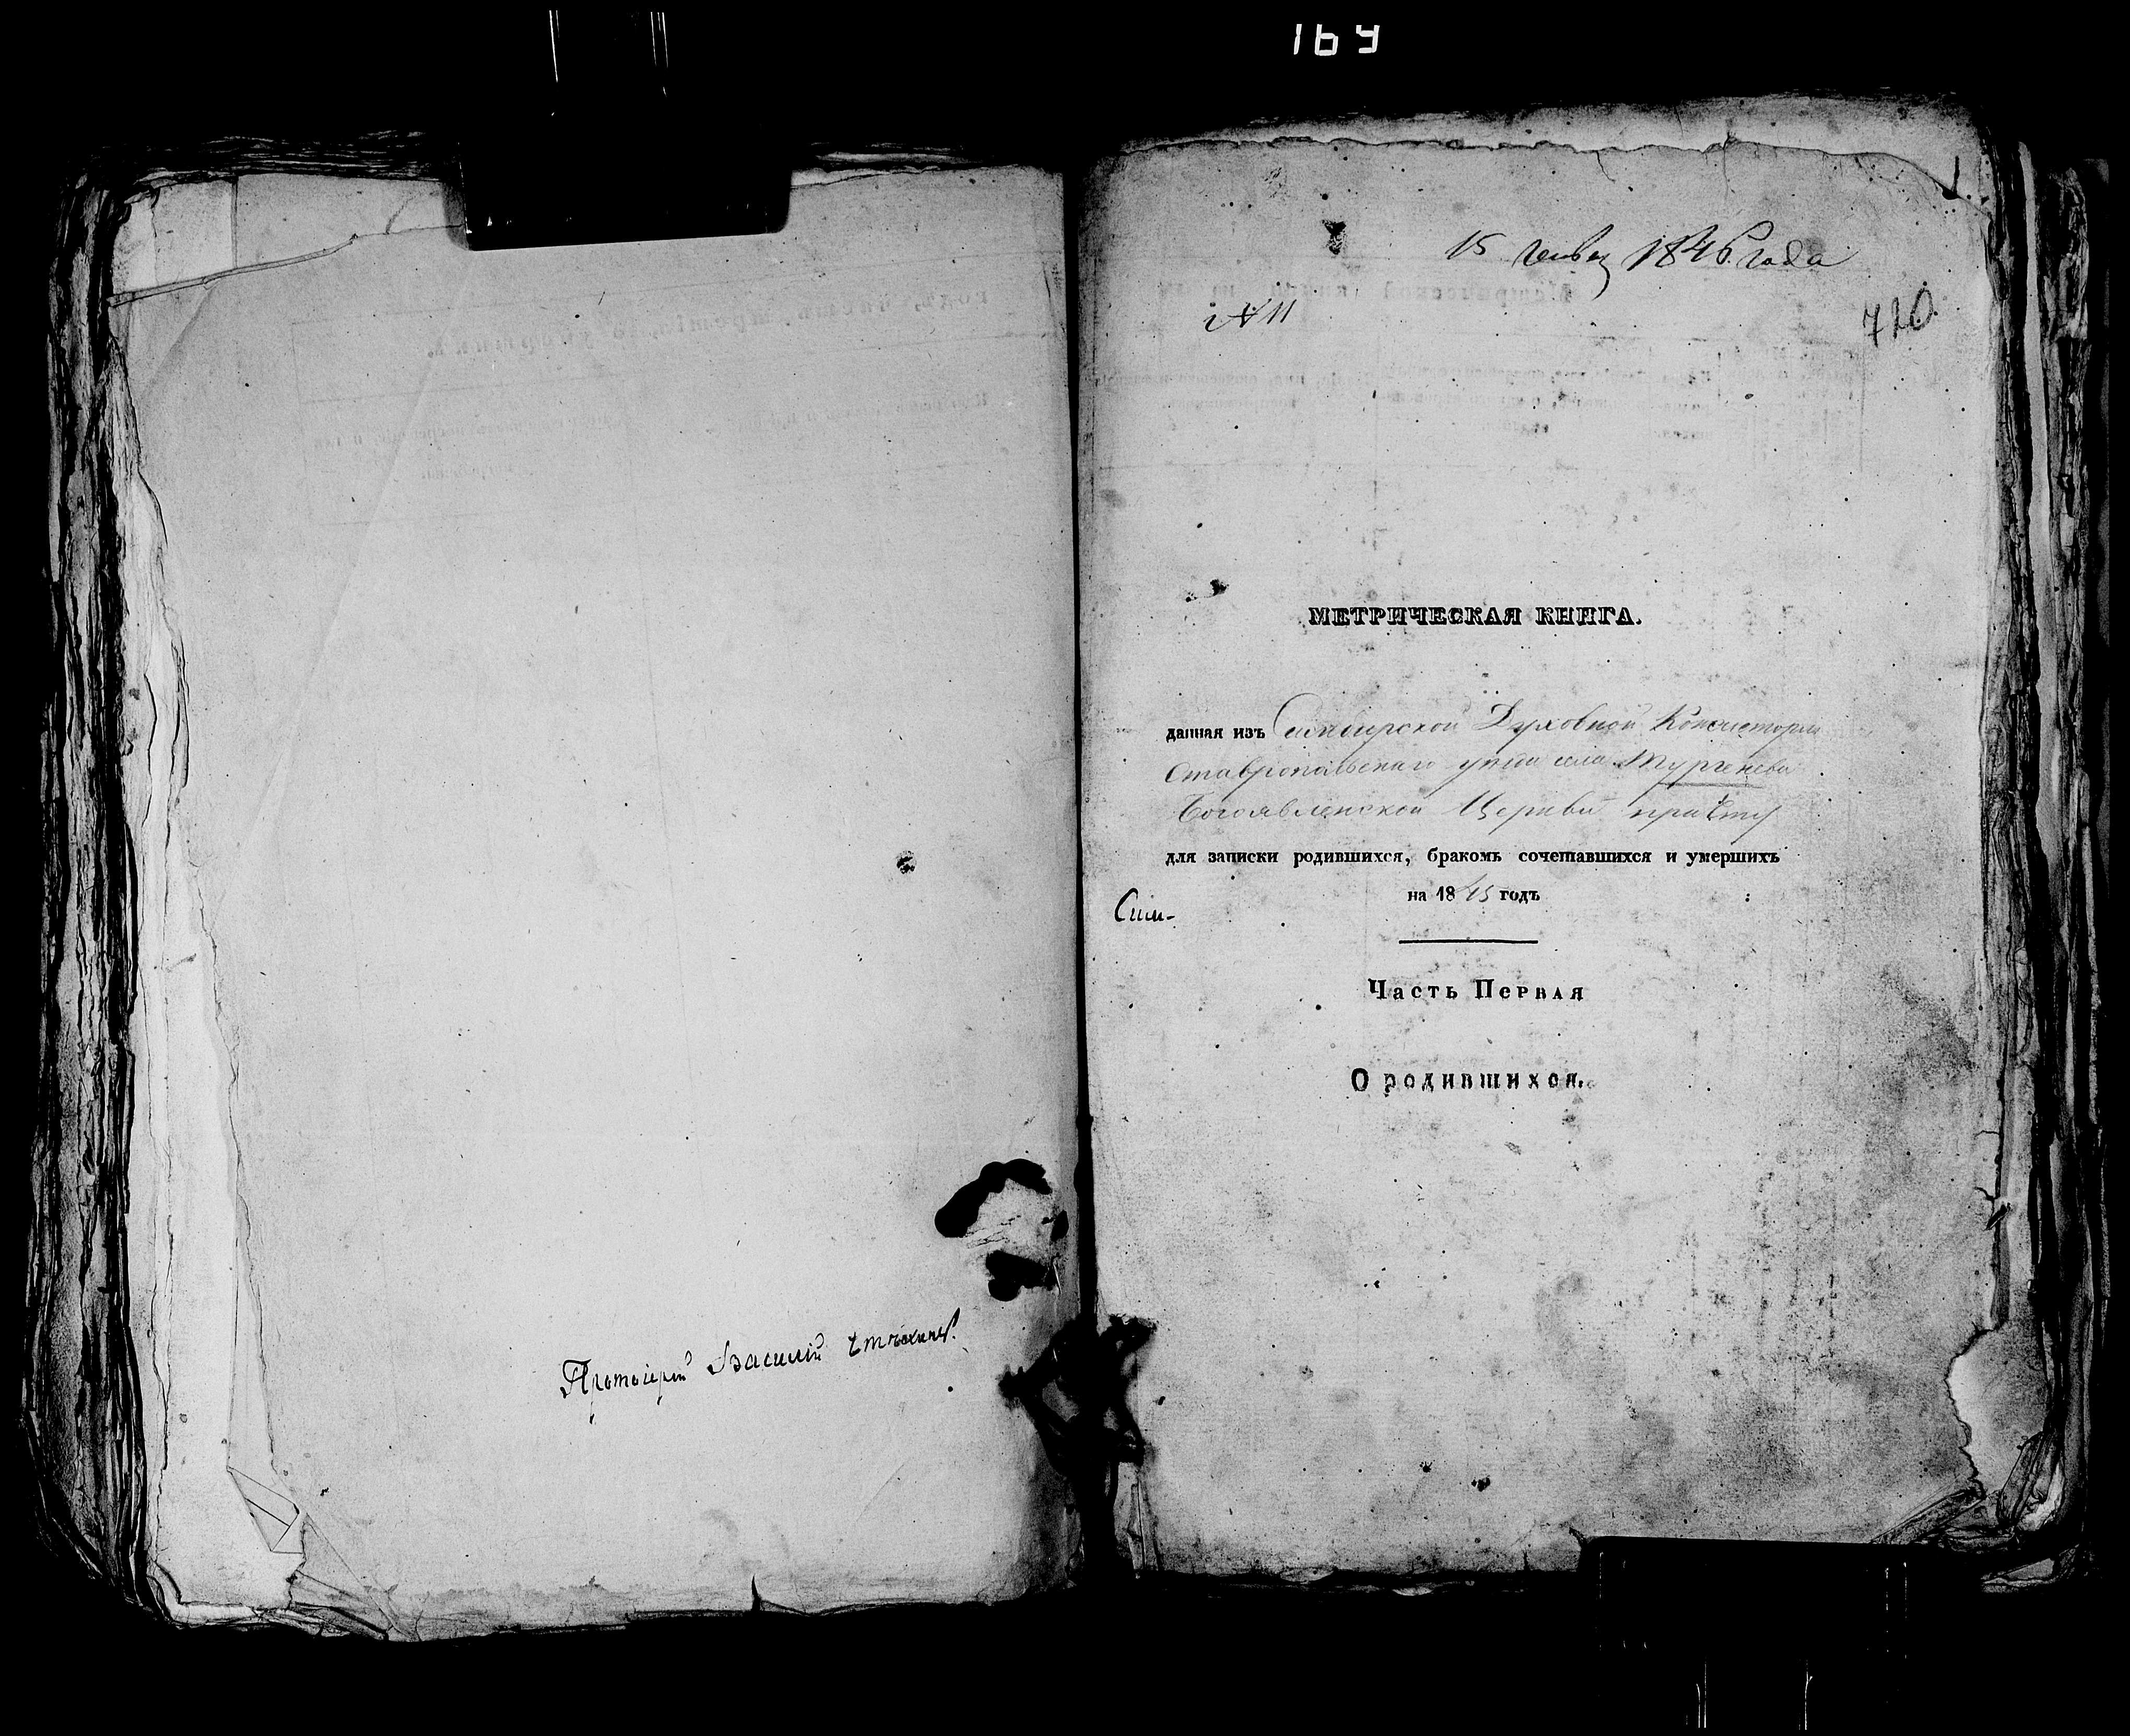 169
Протоіерей Василій
15 Генвар 1846 года
№ 11
710
МЕТРИЧЕСКАЯ КНИГА.
данная изъ Симбирской Духовной Консисторіи
Ставропольскаго уѣзда села Тургенева
Богоявленской Церкви причту
для записки родившихся, бракомъ сочетавшихся и умершихъ
на 1845 годъ
Сим-
Часть Первая
О родившихся.